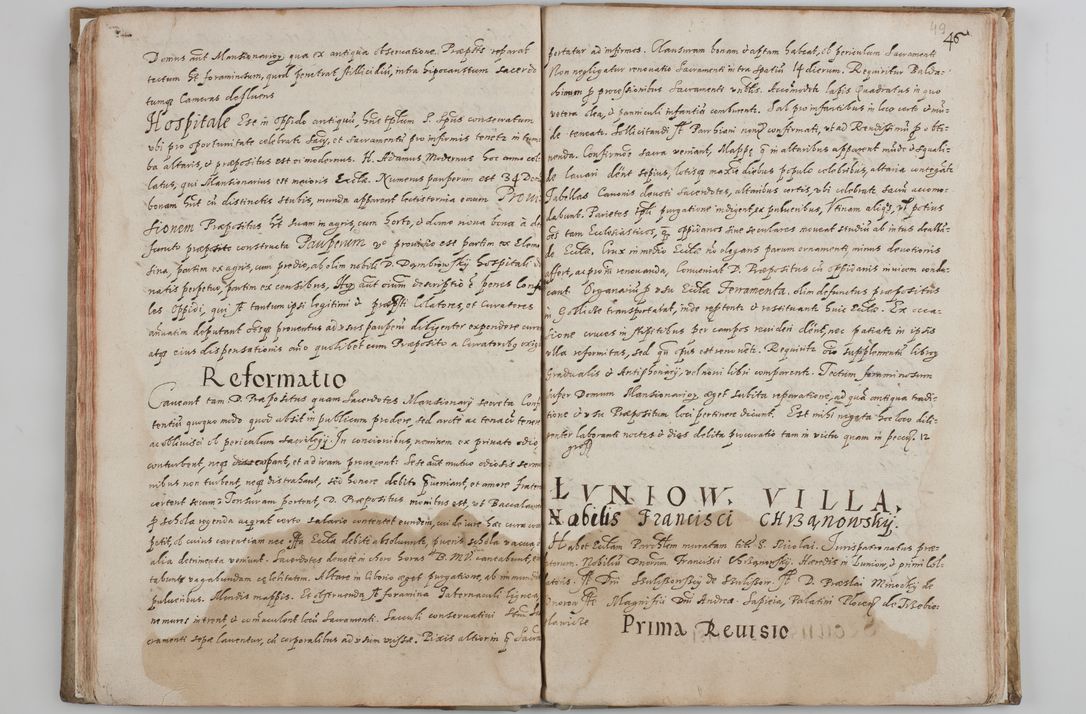 Domus aūt Mansionarioɤ, qua ex antiqua obseruatione. Præptūs reparat
tectum ħt foraminosum, quod penetrat stillicidiū, intra hipocaustum sacerdo
tumq̢ Cameras defluens
Hospitale Est in Oppido antiquū sūb titulum S. Spūs conseruatum
vbi pro oportunitate celebratᵣ Sacrū, et Sacramenti pro infirmis tenetᵣ in
ba altaris, et præpositus est ei modernus. H. Adamus Modernus hoc anno col
latus, qui Mansionarius est maioris Ecclæ. Numerus pauperum est 34 Dom
bonam ħnt cū distinctis stubis, munda apparent lectisternia eorum Proui
sionem Præpositus ħt suam in agris, cum horto, et domo noua bona à de
functo præposito constructa Pauperum vº prouisio est partim ex Elemo
sina, partim ex agris, cum predio, ab olim nobili D. Dymbrowskÿ hospitali do
natis perpetuo, partim ex censibus, Hoɤ aūt oīum descriptio ē penes Consu
les Oppidi, qui sūt tantum ipsi legitimi et Zelatores, et Curatores
añuatim deputant prouentus ad vsus pauperū diligenter expendere
atq̢ eius dispensationis quolibet cum Præposito a Curatoribɤ exigi
Reformatio
Caueant tam D. Præpositus quam Sacerdotes Mansionarÿ secreta Conf
tentiū quoquo modo quod absit in publicum prodere, sed arcte ac tenaciter
ac obliuisci ob periculum Sacrilegÿ. In concionibus, neminem ex priuato odio
conturbent, neq̢ et ad iram prouocent. Sese aūt mutuo odiosis sermo
nibus non turbent, neq̢ distrahant, sed honore debito p̄ueniant, et amore
certent secum. Tonsuram portent, D. Præpositus monitus est, vt Baccalaureus
p schola regenda certo salario contentet eundem, cui de iure hæc cura
petit, ob cuius carentiam nec Ecclæ debite absoluunt, pueris schola vacua
alia detimenta veniunt. Sacerdotes deuote in choro horas B. M. V. caneabunt, et
tabunt vagabundam celeritatem. Altare in ciborio eget purgatione, ab immundis
pulueribus. Mundis mappis. Et obstruenda sūt foramina Tabernaculi lignea
ne mures introent, et commaculent locū Sacramenti. Sacculi conseruatiui
cramenti sepe lauentur, cū corporalibus ad vsum vasæ. Pixis altiorin q̄ Sacra

46
49
portatur ad infirmos. Clausuram bonam et aptam habeat, ob periculum Sacramenti
Non negligatur renouatio Sacramenti intra spatiū 14 dierum. Requiritur Baldac
himum p processionibus Sacramenti vtilis. Accomodetᵣ lapis Quadratus in quo
vetera olea, et panniculi infantiū comburenti. Sal pro infantibus in loco certo et mun
do teneatᵣ. Sollicitandi sūt Parochiani nondū confirmati, vt ad Rendissimū p obti
nenda Confirmone sacra veniant, Mappe q̄ in altaribus apparent nude et squali
de lauari dēnt sepius, locisq̢ maxie diebus populo celebribus, altaria contegātᵣ
Tabellas Canonis deuoti Sacerdotes, altaribus certis, vbi celebratᵣ sacrū accomo
dabunt. Parietes tpli purgatione indigent, ex pulueribus, Vtinam aliqs, vt potius
oēs tam Ecclesiasticos, q̄ oppidanos siue seculares moueat studiū ab intus dealban
dæ Ecclæ. Crux in medio Ecclæ nō elegans parum ornamenti, minus deuotionis
affert, ac proīn renouanda, Conueniat D. Præpositus cū oppidanis inuicem condu
cant Organariū p vsu Ecclæ Ferramenta. olim defunctus præpositus
in Gollicze transportabat, inde repetantᵣ et restituantᵣ huic Ecclæ. Ex occa
sione cruces in stipitibus per campos recideri dēnt, nec patiatᵣ in ipsis
vlla reformitas, sed qn opus est renouētᵣ. Requiritᵣ supplementū libroɤ
Gradualis et Antiphonarÿ, vel noui libri comparenti. Tectum foraminosum
super Domum Mansionarioɤ, eget subita reparatione, ad quā antiqua tradi
tione et vsu Præpositum loci pertinere dicunt. Est mihi negata hoc loco dili
genter laboranti noctes et dies debita procuratio tam in victu quam in peccuÿs 12
gross
LVNIOW. VILLA.
Nobilis Francisci CHRZąnowskÿ.
Habet Ecclam Parochlem muratam titlī S. Nicolai. Jurispatronatus præ
terum. Nobiliū Dnorum Francisci Chrząnowskÿ. Hæredis in Łuniow, et primi Col
latoris. Itē Dni Szulissowskÿ de Szulissow. Itē D. Præslai Minockÿ de
Dnorow Itē Magnificii Dni Andreæ Sapieia, Palatini Plocens̄ de Trebie
slawicze
Prima Reuisio